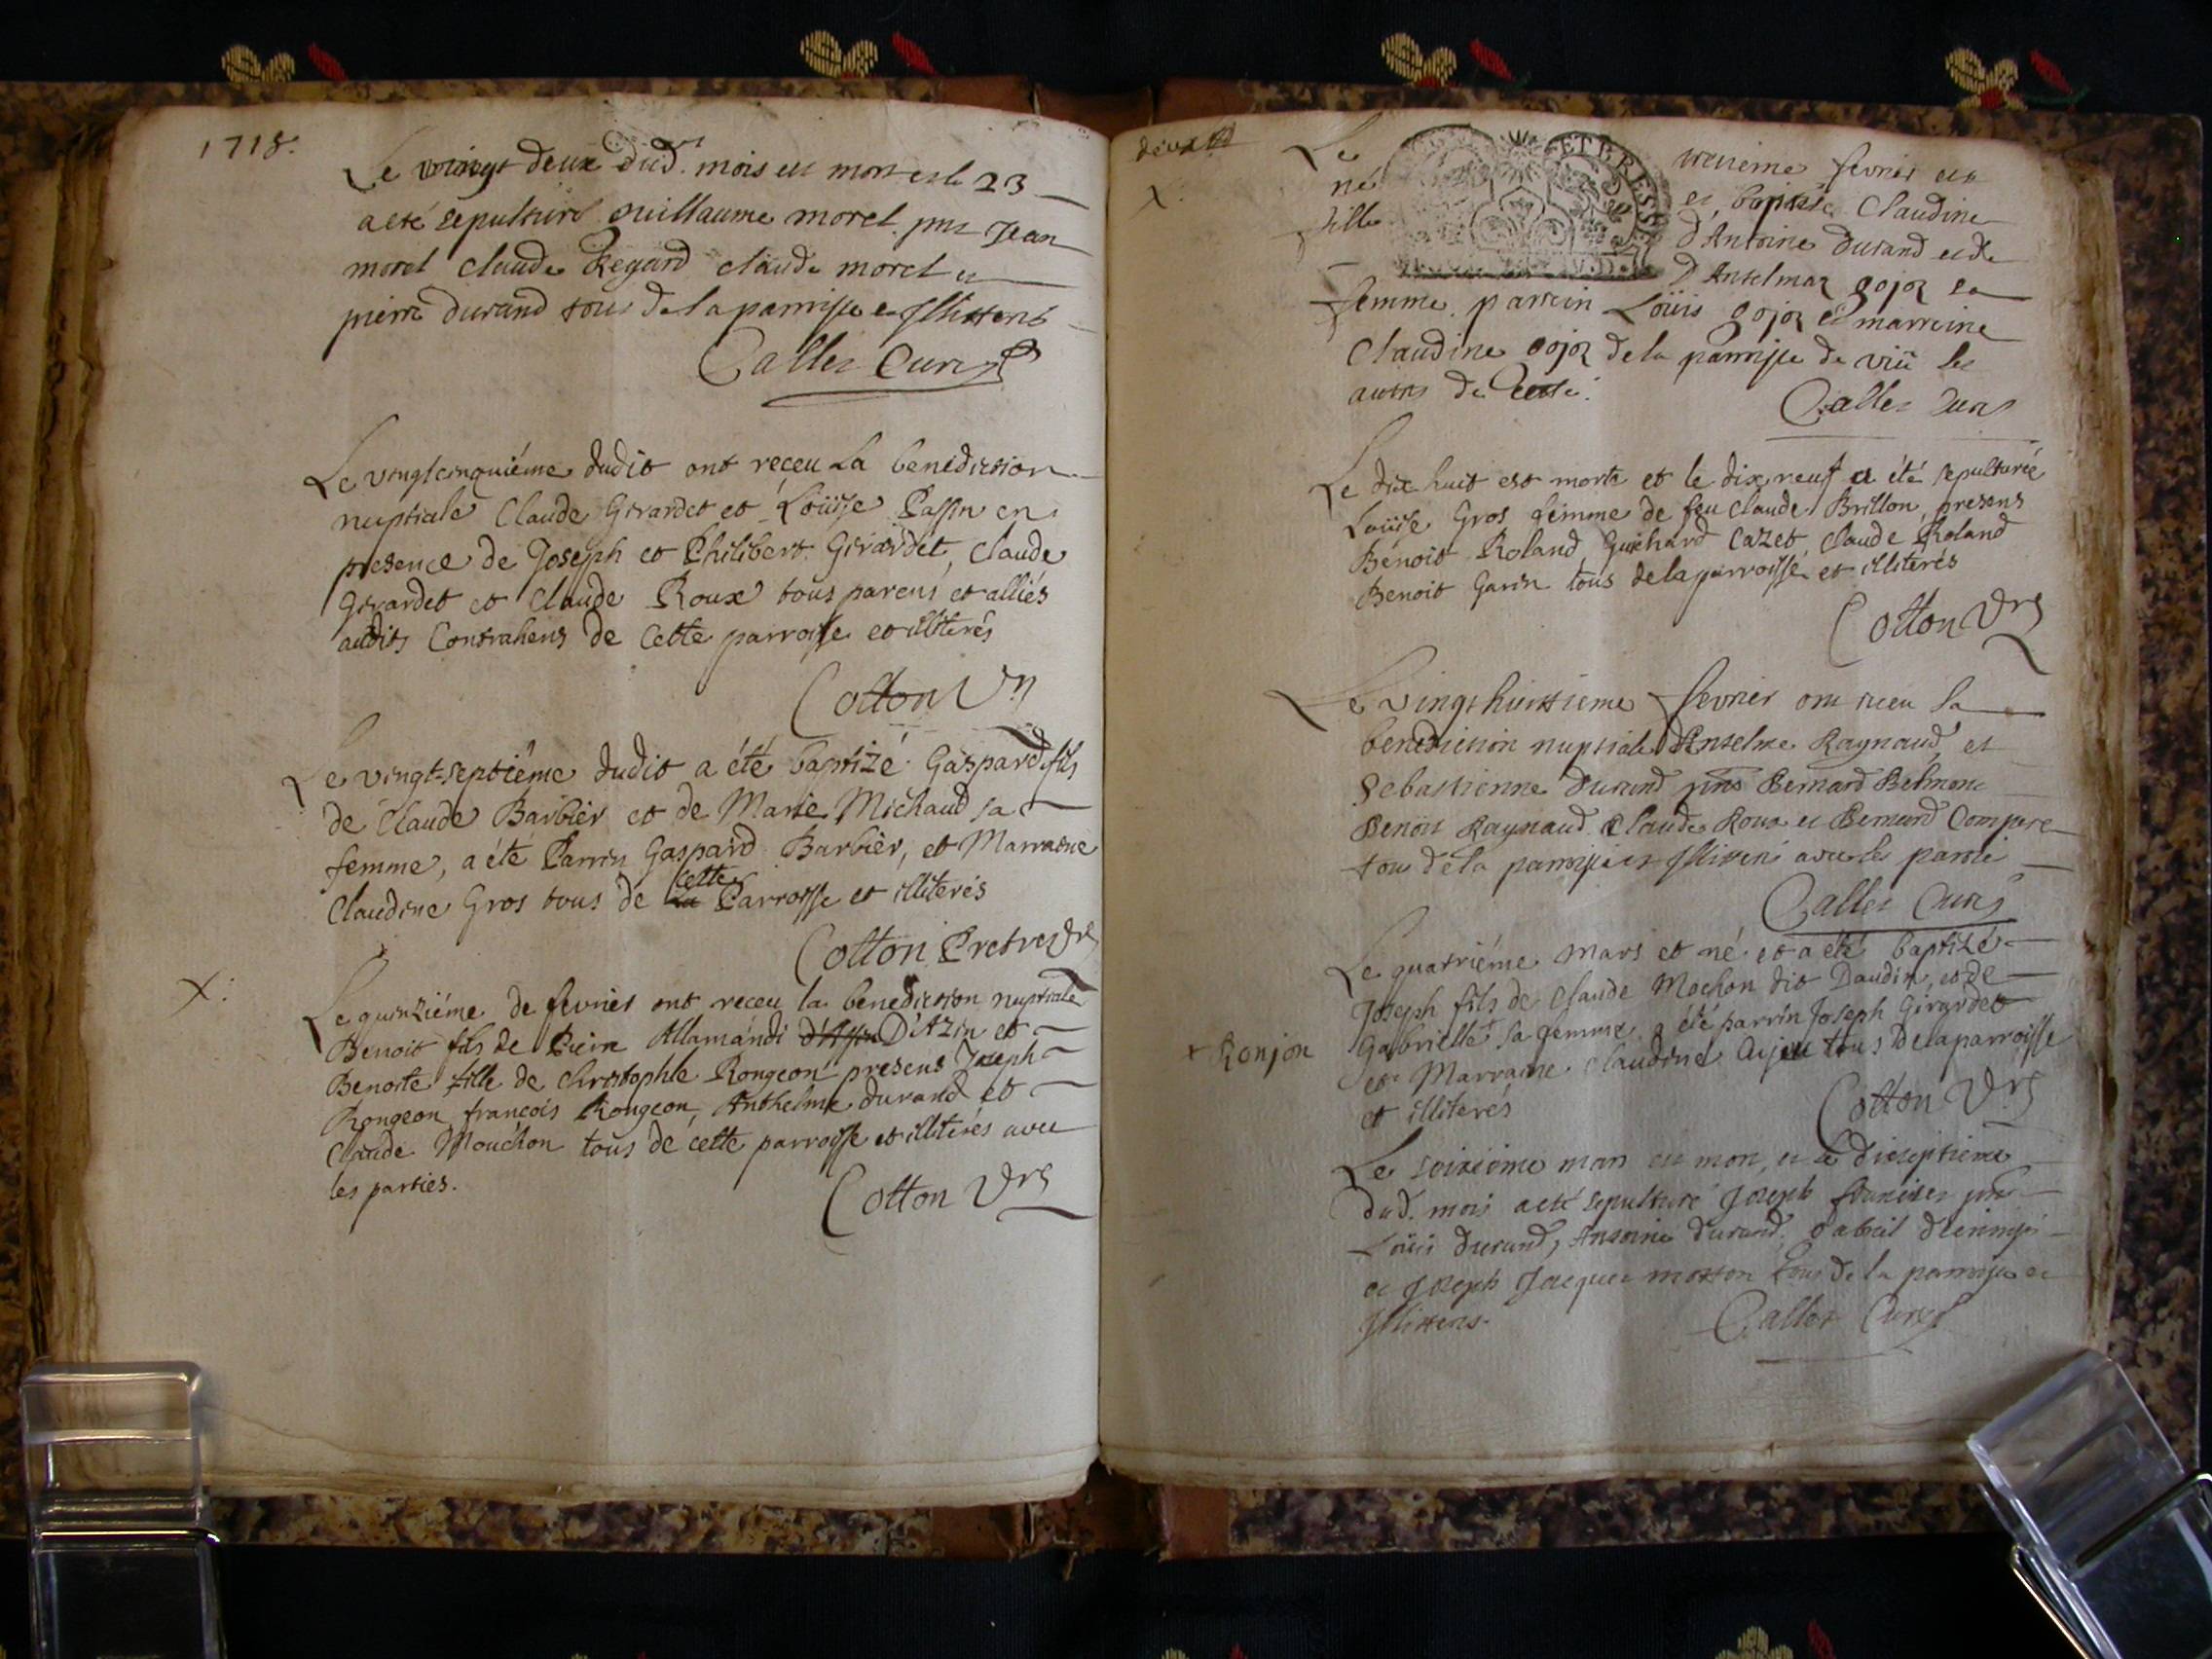 1718.
Le vingt deux dud. mois est mort et le 23
a eté sepulturé guillaume morel pns Jean
morel claude Regard claude morel et
pierre durand tous de la parroisse et Illitterés
Callet Curé
Le vingtcinquiéme dudit ont reçeu La benediction
nuptiale Claude Girardet et Loüise Passin en
presence de Joseph et Philibert Girardet, Claude
Girardet et Claude Roux tous parens et alliés
audits Contrahens de Cette parroisse et illiterés
Cotton Vre
Le vingt-septiéme dudit a été baptizé Gaspard fils
de Claude Barbier et de Marie Michaud sa
femme, a été Parrin Gaspard Barbier, et Marraine
cette
Claudine Gros tous de la Parroisse et illiterés
Cotton Pretre Vre
X:
Le quinziéme de fevrier ont receu la benediction nuptiale
Benoit fils de Pierre Allamandi d'Azin D'Azin et
Benoite fille de christophle Rongeon presens Joseph
Rongeon françois Rongeon, Anthelme durand et
Claude Mouchon tous de cette parroisse et illiterés avec
les parties.
Cotton Vre
deux
X:
Le treiieme fevrier est
ETERESSE
né et baptisée Claudine
fille d'Antoine durand et de
d'Anselmaz gojoz sa
femme. parrein Loüis gojoz et marreine
Claudine gojoz de la parroisse de viü les
autres de Cette.
Callet Curé
Le dix huit est morte et le dix neuf a été sepulturée
Loüise Gros femme de feu Claude Brillon, presens
Benoit Roland, Guichard Cazet, Claude Roland
Benoit Garin tous de la parroisse et illiterés
Cotton Vre
Le vingthuittieme fevrier ont receu la
benediction nuptiale Anselme Raynaud et
Sebastienne durand pns Bernard Belmont
Benoit Raynaud Claude Roux et Bernard Compere
tous de la parroisse et Illitterés avec les parties
Callet Curé
Le quatriéme mars et né et a été baptizé
Joseph fils de Claude Mochon dit Daudin, et de
+ Ronjon
Gabrielle + sa femme, a été parrin Joseph Girardet
et Marraine Claudine tous de la parroisse
et illiterés
Cotton Vre
Le seizieme mars est mort, et le dixseptieme
dud. mois a eté sepulturé Joseph pns
Loüis durand, Antoine durand, gabriel
et Joseph Jacques tous de la parroisse et
Illitterés.
Callet Curé